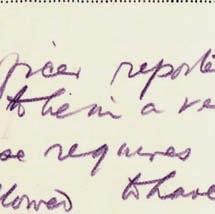 fficer reporte
to him in a ve
se requires
llowed to have